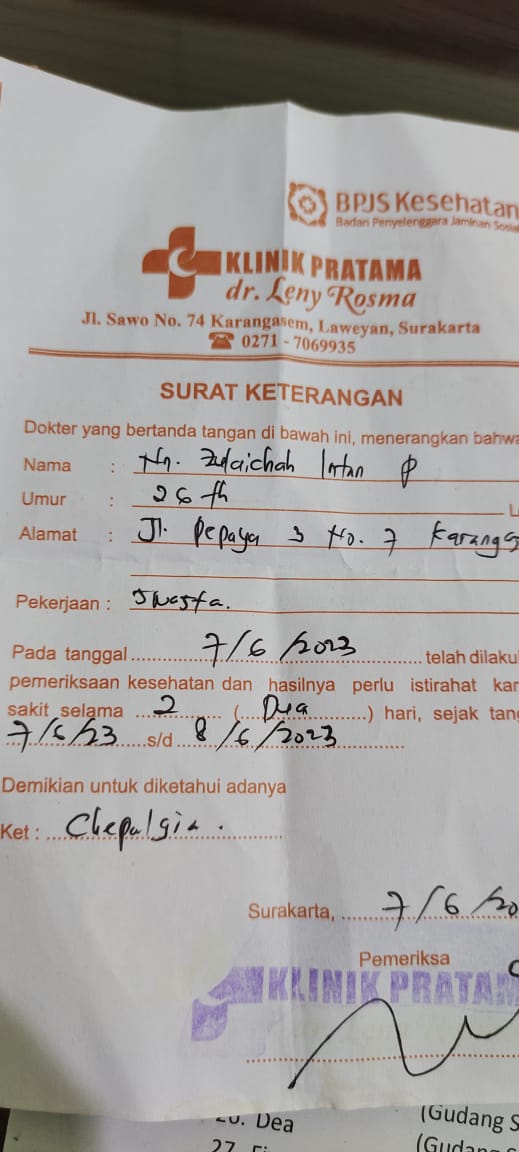 BPJS Kesehatan
Badan Penyelenggara Jaminan Sosial
KLINIK PRATAMA
dr. Leny Rosma
Jl. Sawo No. 74 Karangasem, Laweyan, Surakarta
☎ 0271 - 7069935
SURAT KETERANGAN
Dokter yang bertanda tangan di bawah ini, menerangkan bahwa
Nama : Nn. Zulaichah Intan P
Umur : 26 th L
Alamat : Jl. Pepaya 3 No. 7 Karangs
Pekerjaan : Swasta.
Pada tanggal 7/6/2023 telah dilaku
pemeriksaan kesehatan dan hasilnya perlu istirahat kar
sakit selama 2 ( Dua ) hari, sejak tang
7/6/23 s/d 8/6/2023
Demikian untuk diketahui adanya
Ket : Chepalgia.
Surakarta, 7/6/20
Pemeriksa
KLINIK PRATAM
20. Dea (Gudang S
27. (Gudang